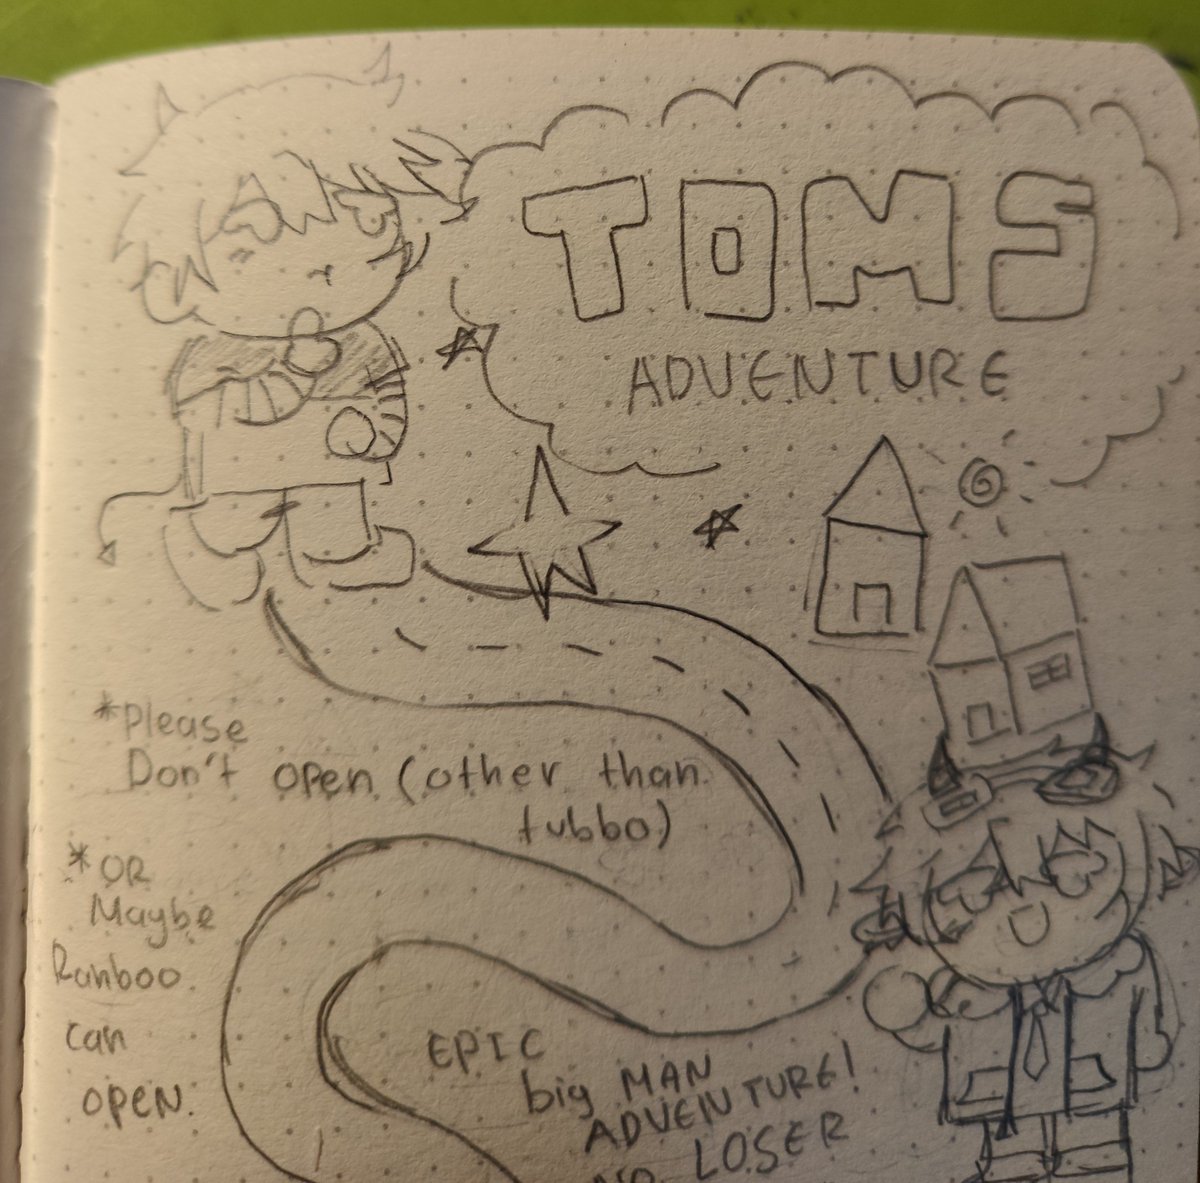 TOMS
ADVENTURE
*Please
Don't open (other than
tubbo)
*OR
Maybe
Ranboo
can
open.
EPIC
big MAN
ADVENTURE!
NO LOSER